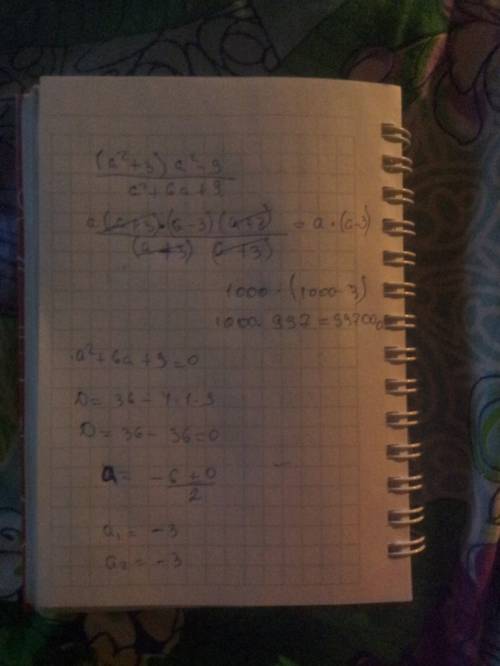 (a²+3) a²-9
a²+6a+9
a(a+3)·(a-3)(a+3) = a·(a-3)
(a+3) (a+3)
1000·(1000-3)
1000·997=997000
a²+6a+9=0
D= 36-4·1·9
D= 36-36=0
a= -6+0
2
a₁= -3
a₂= -3